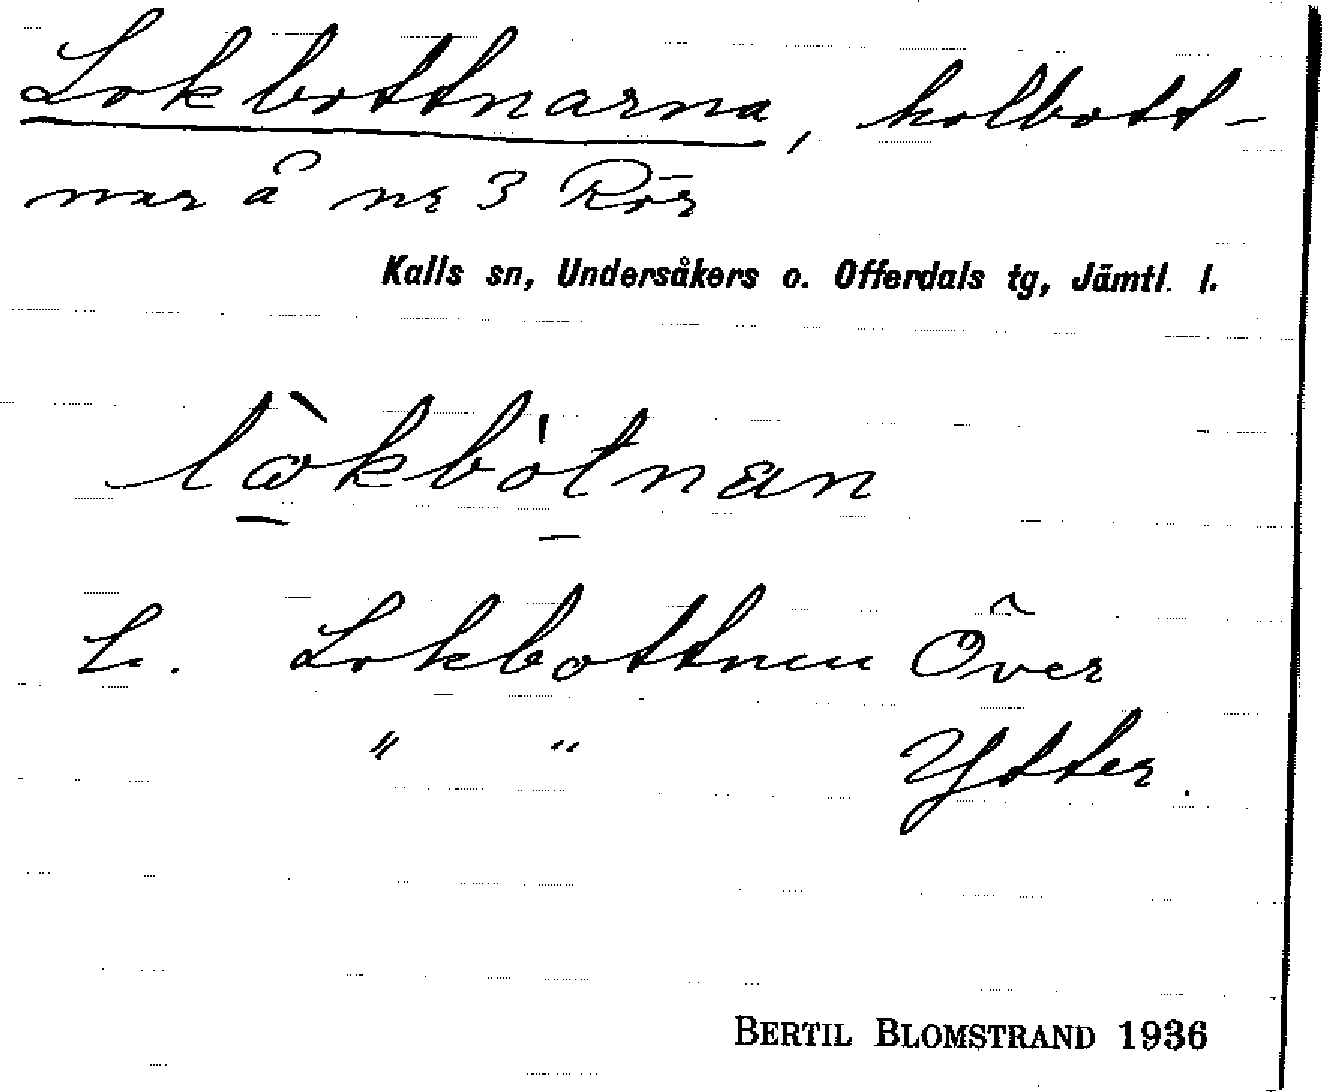 Lokbottnarna, kolbott-
nar å nr 3 Rör
Kalls sn, Undersåkers o. Offerdals tg, Jämtl. l.
L. Lokbottnen Över
" " Ytter.
BERTIL BLOMSTRAND 1936